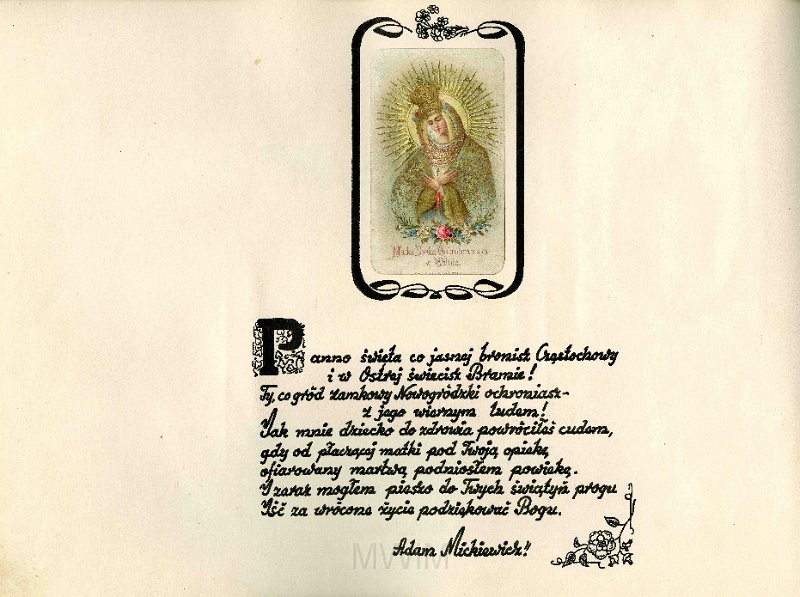 Matka Boska Ostrobramska
w Wilnie.
Panno święta co jasnej bronisz Częstochowy
i w Ostrej świecisz Bramie!
Ty, co gród zamkowy Nowogródzki ochraniasz-
z jego wiernym ludem!
Jak mnie dziecko do zdrowia powróciłaś cudem,
gdy od płaczącej matki pod Twoją opiekę,
ofiarowany martwą podniosłem powiekę.
I zaraz mogłem pieszo do Twych świątyń progu
Iść za wrócone życie podziękować Bogu.
Adam Mickiewicz!!
MWiM